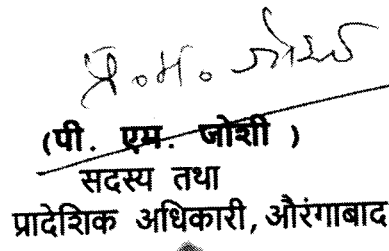 प्र.म. जोशी
(पी. एम. जोशी )
सदस्य तथा
प्रादेशिक अधिकारी, औरंगाबाद